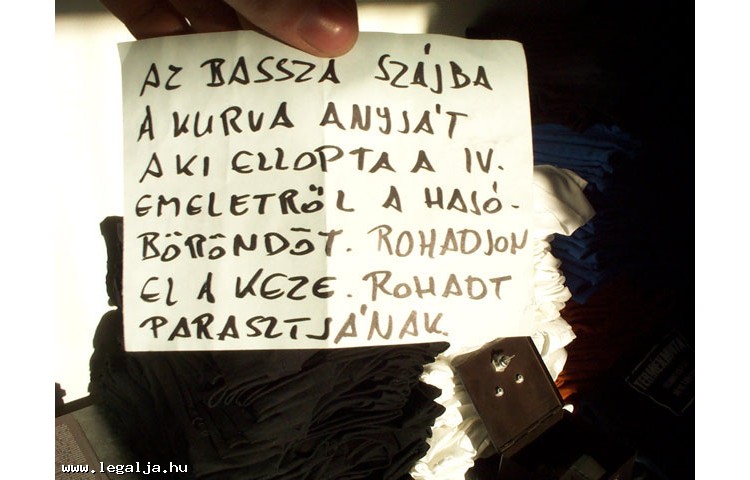 AZ BASSZA SZÁJBA
A KURVA ANYJÁT
AKI ELLOPTA A IV.
EMELETRŐL A HAJÓ-
BŐRÖNDŌT. ROHADJON
EL A KEZE. ROHADT
PARASZTJÁNAK.
www.legalja.hu